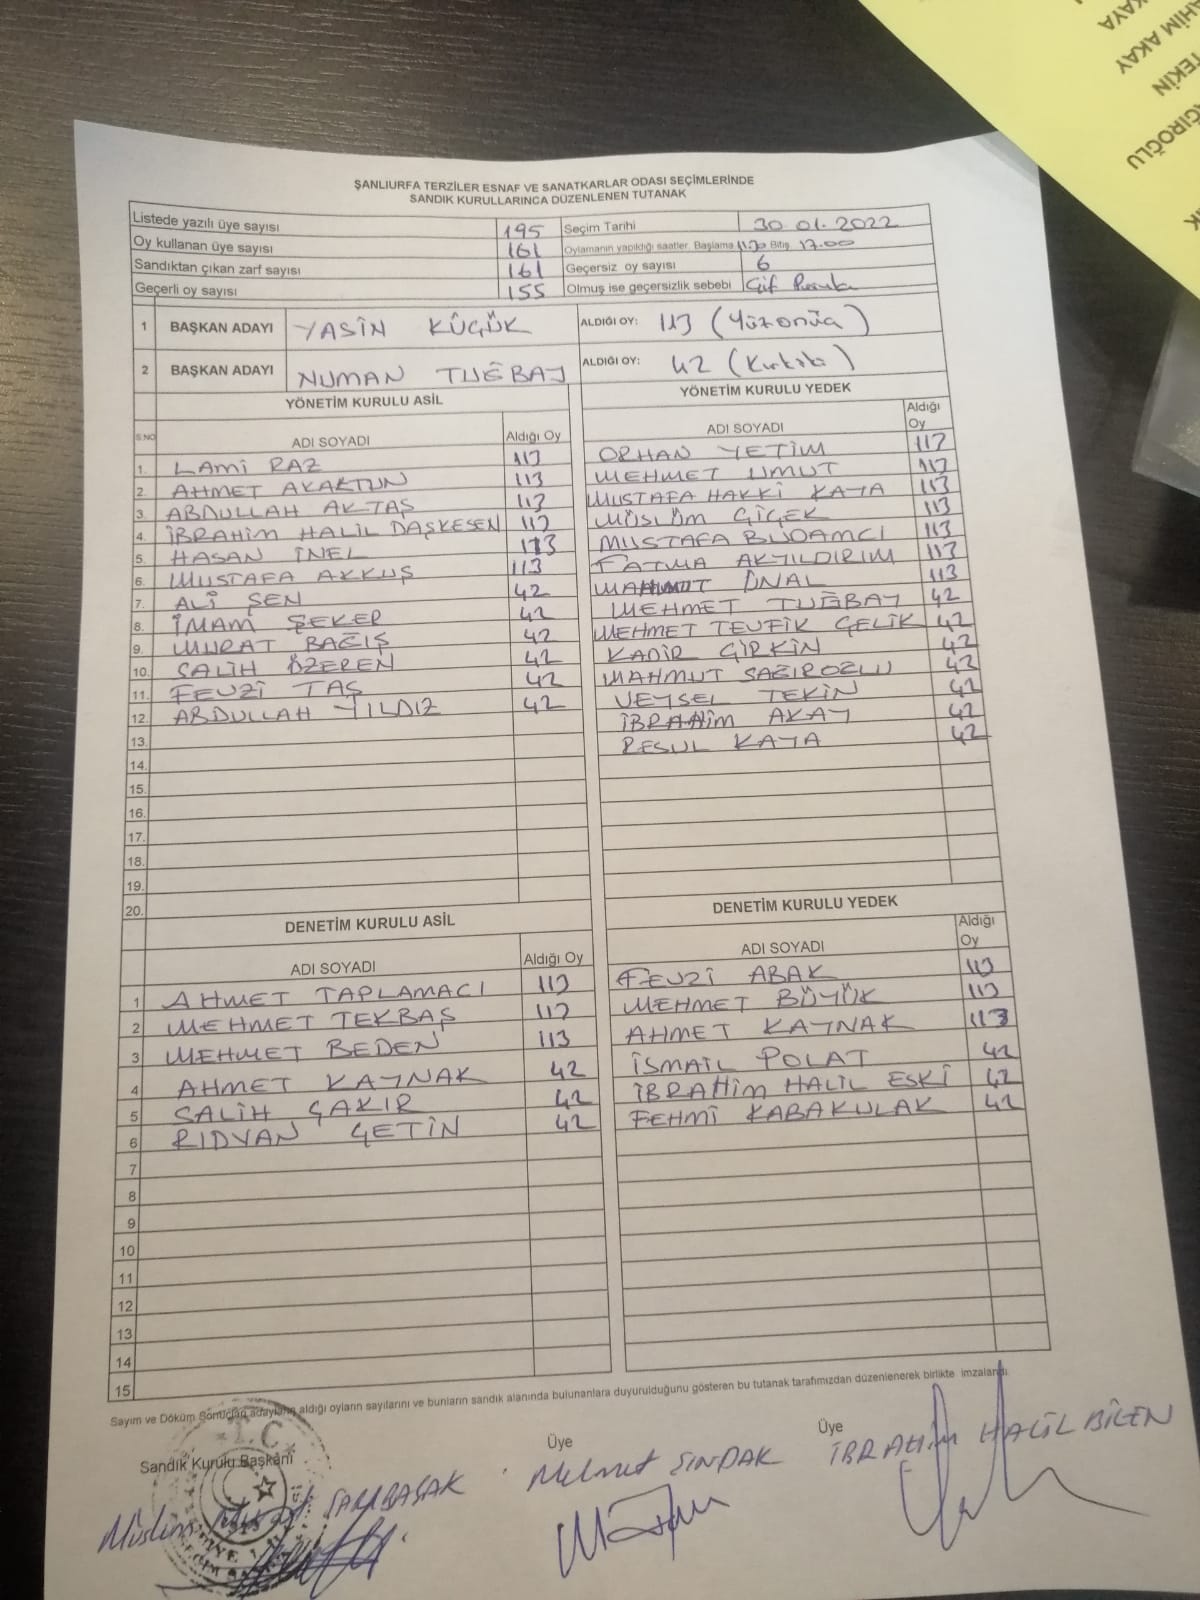 ŞANLIURFA TERZİLER ESNAF VE SANATKARLAR ODASI SEÇİMLERİNDE
SANDIK KURULLARINCA DÜZENLENEN TUTANAK
Listede yazılı üye sayısı 195 Seçim Tarihi 30.01.2022
Oy kullanan üye sayısı 161 Oylamanın yapıldığı saatler. Başlama Bitiş 17.00
Sandıktan çıkan zarf sayısı 161 Geçersiz oy sayısı 6
Geçerli oy sayısı 155 Olmuş ise geçersizlik sebebi Çif Pusula
1 BAŞKAN ADAYI YASİN KÜÇÜK ALDIĞI OY: 113 (Yüzonüç)
2 BAŞKAN ADAYI NUMAN TUĞBAY ALDIĞI OY: 42 (Kırkiki)
YÖNETİM KURULU ASİL
S.NO ADI SOYADI Aldığı Oy
1. LAMİ RAZ 113
2. AHMET AKAKTUN 113
3. ABDULLAH AKTAŞ 113
4. İBRAHİM HALİL DAŞKESEN 113
5. HASAN İNEL 113
6. MUSTAFA AKKUŞ 113
7. ALİ ŞEN 42
8. İMAM ŞEKER 42
9. MURAT BAĞIŞ 42
10. SALİH ÖZEREN 42
11. FEVZİ TAŞ 42
12. ABDULLAH YILDIZ 42
13.
14.
15.
16.
17.
18.
19.
20.
YÖNETİM KURULU YEDEK
ADI SOYADI Aldığı Oy
ORHAN YETİM 113
MEHMET UMUT 113
MUSTAFA HAKKİ KAYA 113
MÜSLÜM ÇİÇEK 113
MUSTAFA BUDAMCI 113
FATMA AKYILDIRIM 113
MAHMUT ÜNAL 113
MEHMET TUĞBAY 42
MEHMET TEVFİK ÇELİK 42
KADİR GİRKİN 42
MAHMUT SAĞIROĞLU 42
VEYSEL TEKİN 42
İBRAHİM AKAY 42
RESUL KAYA 42
DENETİM KURULU ASİL
ADI SOYADI Aldığı Oy
1 AHMET TAPLAMACI 113
2 MEHMET TEKBAŞ 113
3 MEHMET BEDEN 113
4 AHMET KAYNAK 42
5 SALİH ÇAKIR 42
6 RIDVAN ÇETİN 42
7
8
9
10
11
12
13
14
15
DENETİM KURULU YEDEK
ADI SOYADI Aldığı Oy
FEVZİ ABAK 113
MEHMET BÜYÜK 113
AHMET KAYNAK 113
İSMAİL POLAT 42
İBRAHİM HALİL ESKİ 42
FEHMİ KABAKULAK 42
Sayım ve Döküm Sonuçları adayların aldığı oyların sayılarını ve bunların sandık alanında bulunanlara duyurulduğunu gösteren bu tutanak tarafımızdan düzenlenerek birlikte imzalandı.
Sandık Kurulu Başkanı Üye Üye
Müslüm SARIBAŞAK Mehmet SINDAK İBRAHİM HALİL BİLEN
T.C.
AHİM AKAY
TEKİN
KAYA
ĞIROĞLU